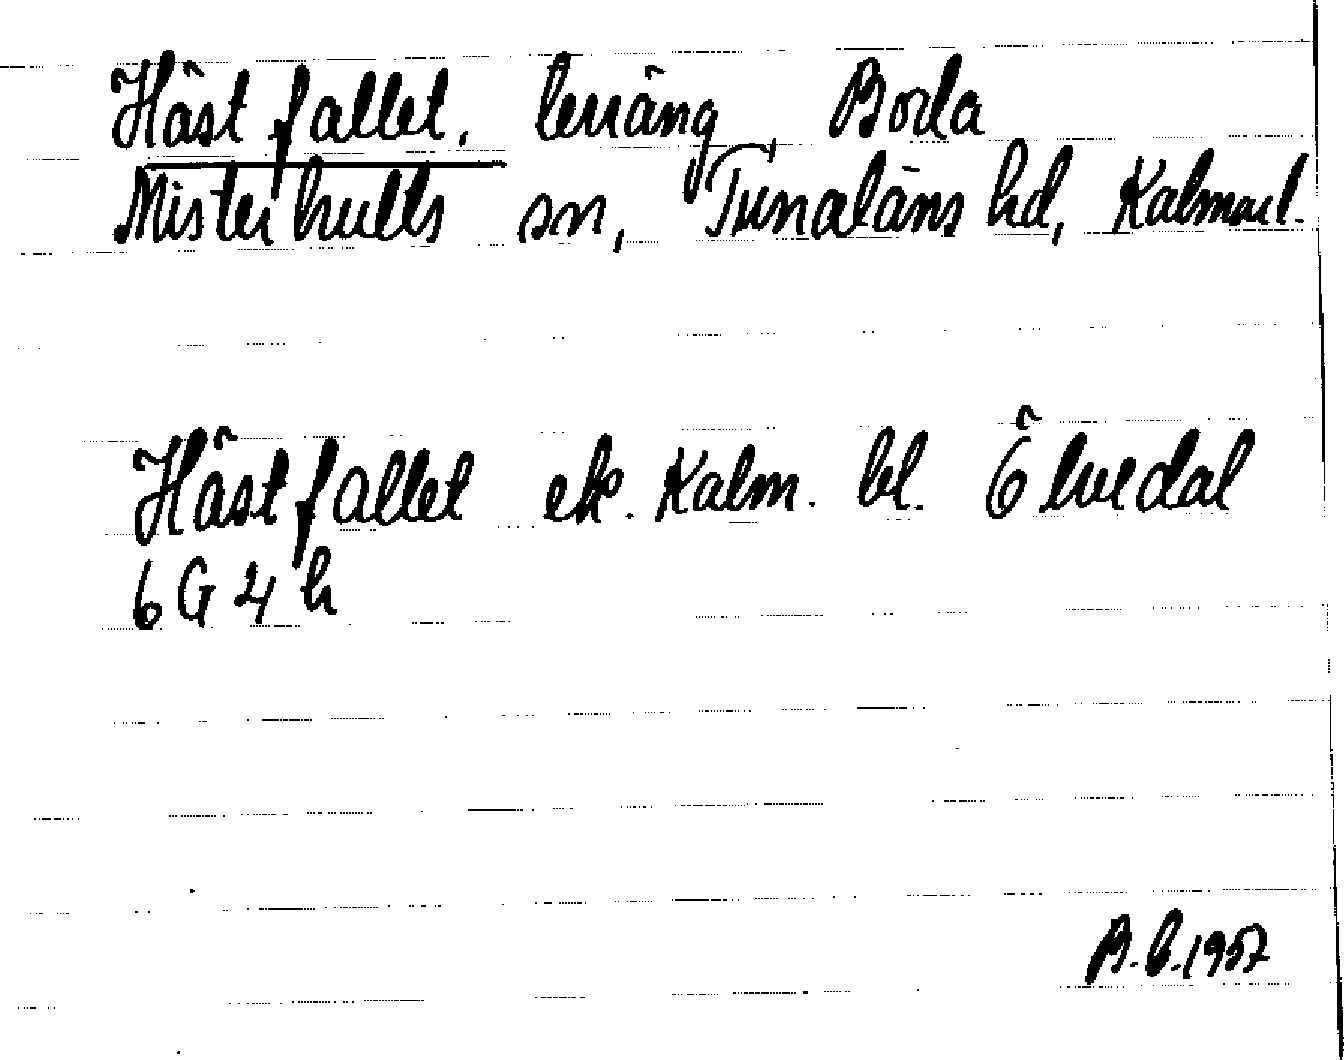 Hästfallet, terräng, Boda
Misterhults sn, Tunaläns hd, Kalmar l.
Hästfallet ek. Kalm. bl. Ölvedal
6 G 4 h
B.b. 1957